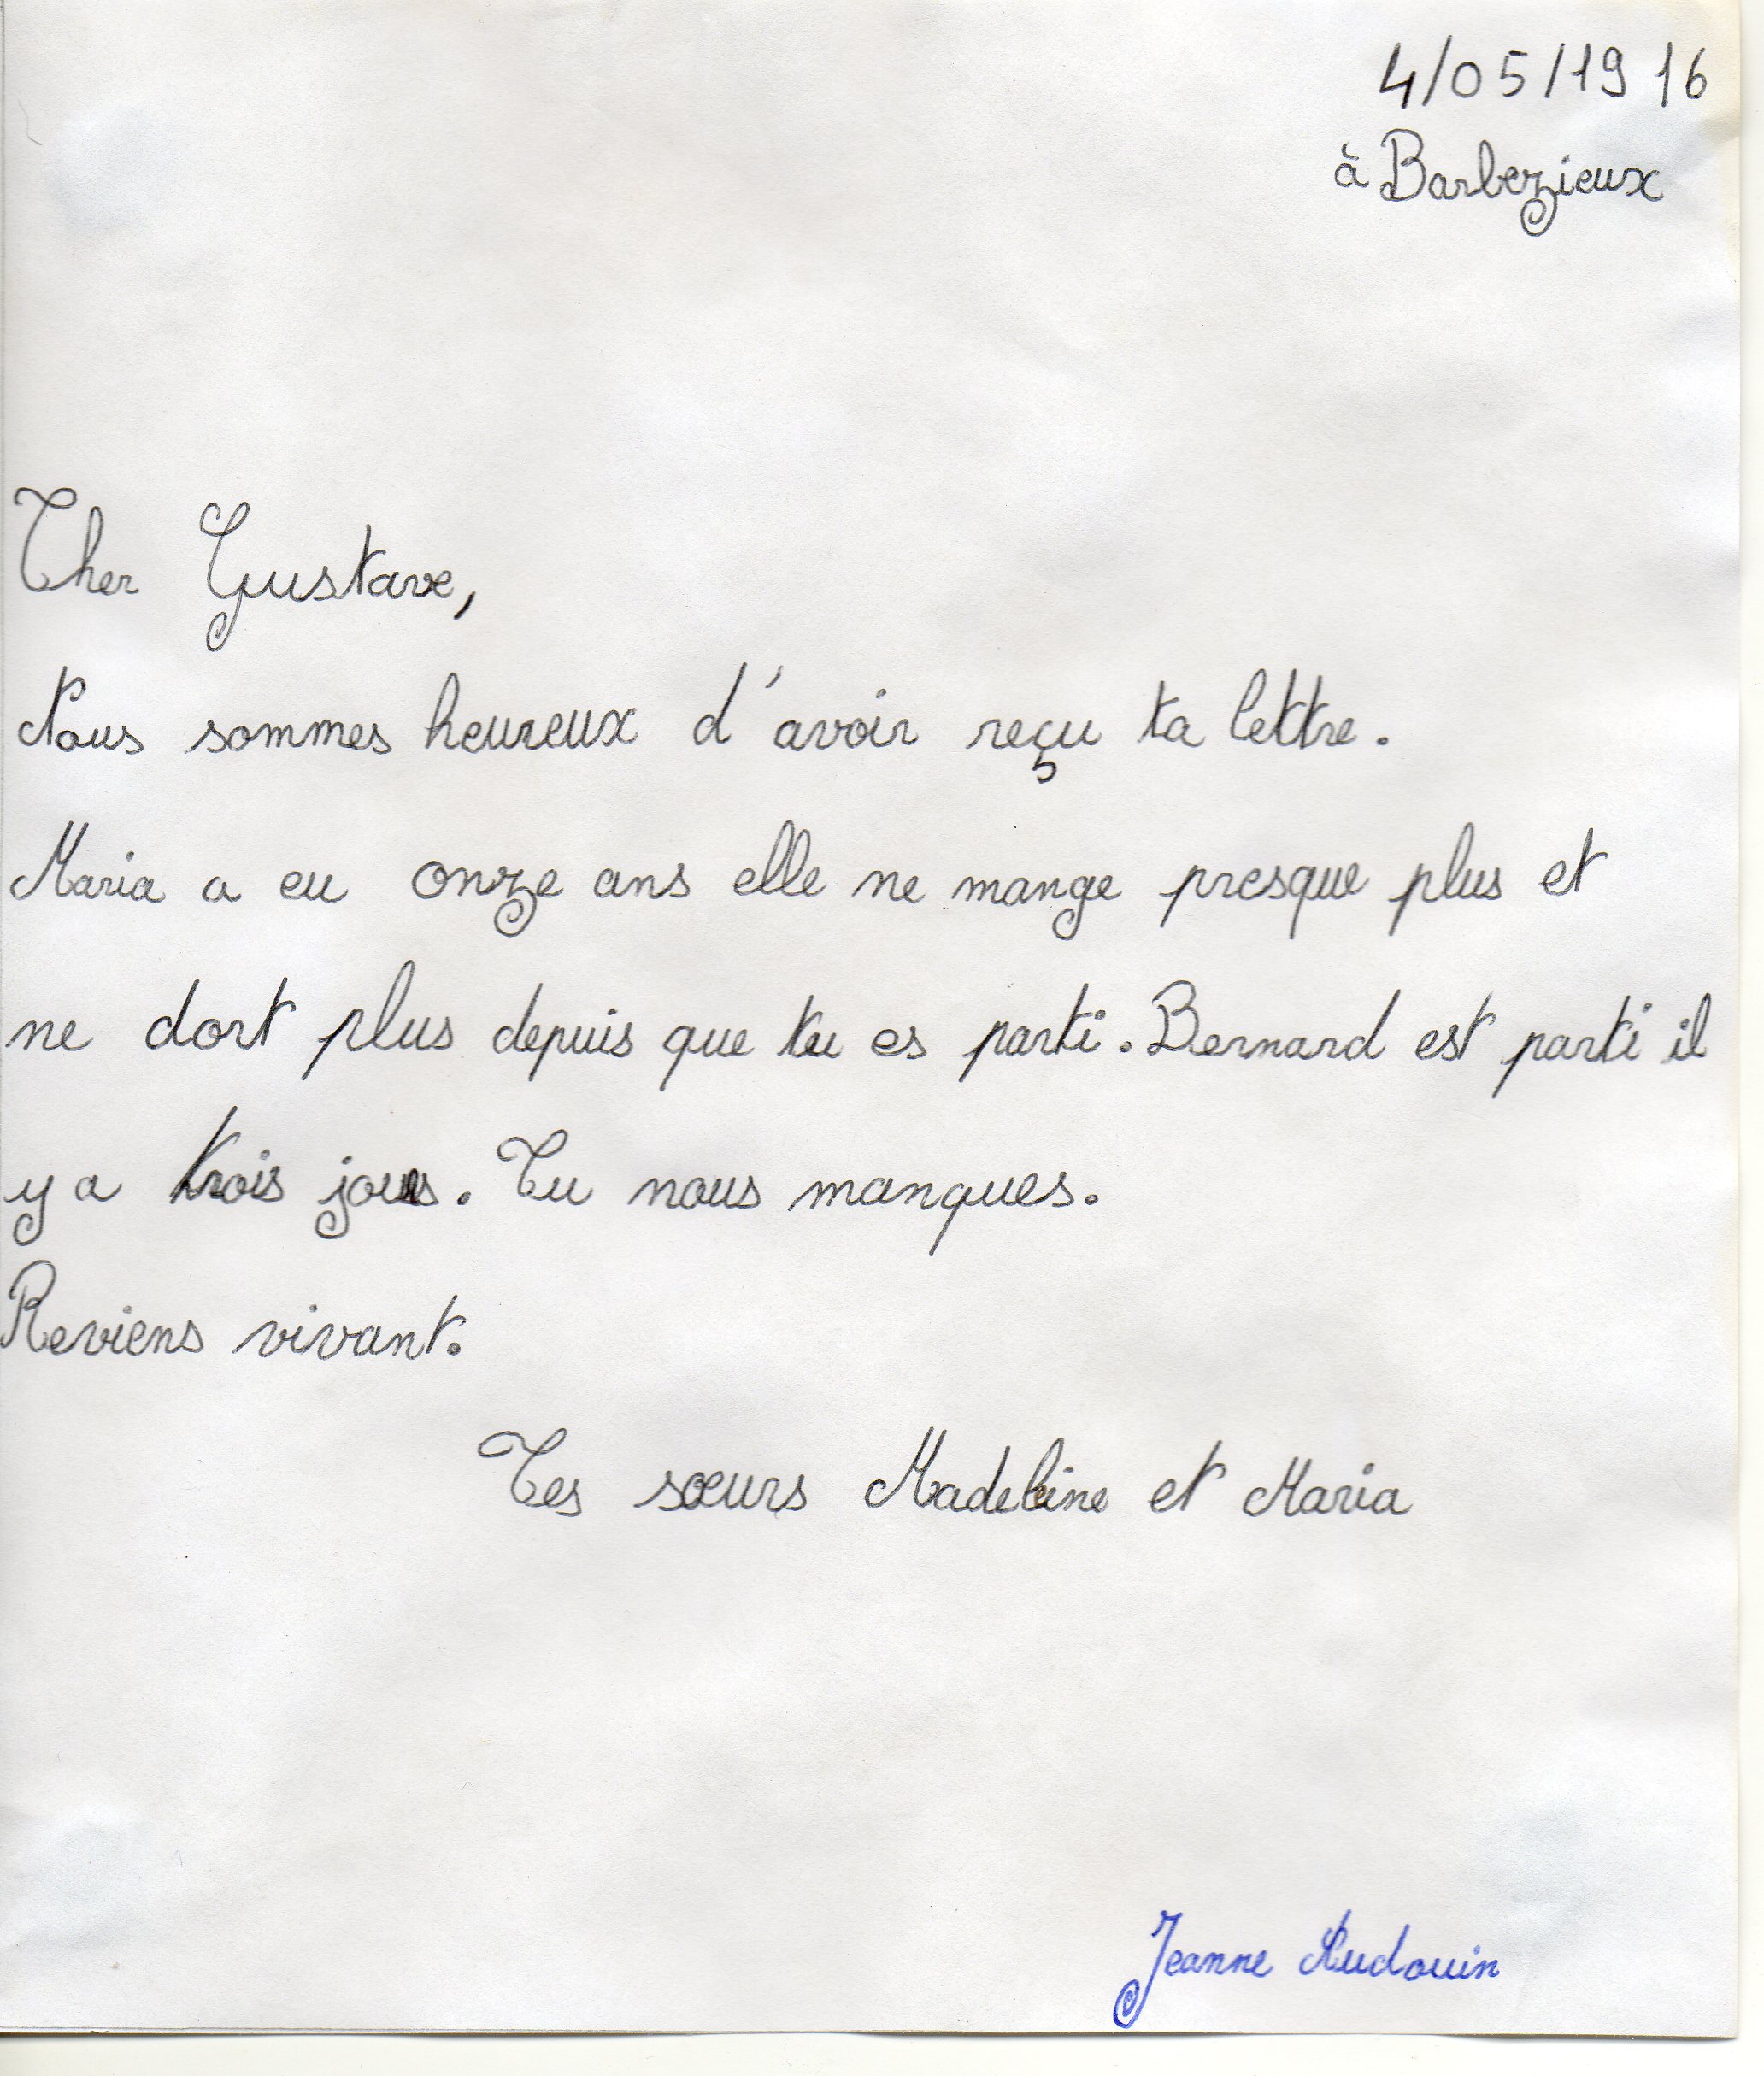 4/05/1916
à Barbezieux
Cher Gustave,
Nous sommes heureux d'avoir reçu ta lettre.
Maria a eu onze ans elle ne mange presque plus et
ne dort plus depuis que tu es parti. Bernard est parti il
y a trois jours. Tu nous manques.
Reviens vivant.
Tes sœurs Madeleine et Maria
Jeanne Audouin